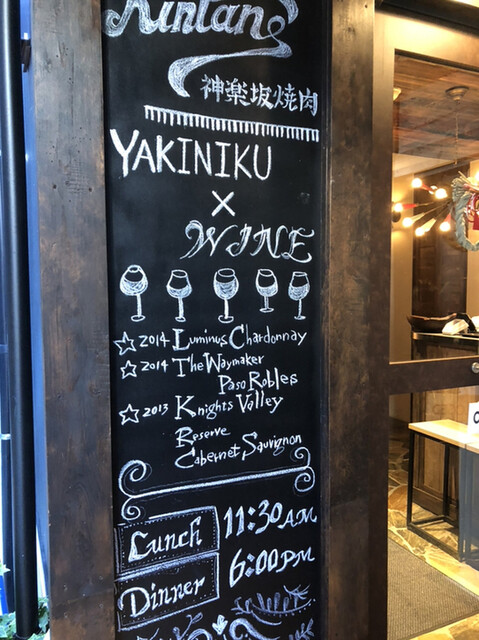 Kintan
神楽坂焼肉
YAKINIKU
×
WINE
☆ 2014 Luminus Chardonnay
☆ 2014 The Waymaker
Paso Robles
☆ 2013 Knights Valley
Reserve
Cabernet Sauvignon
Lunch 11:30AM
Dinner 6:00PM